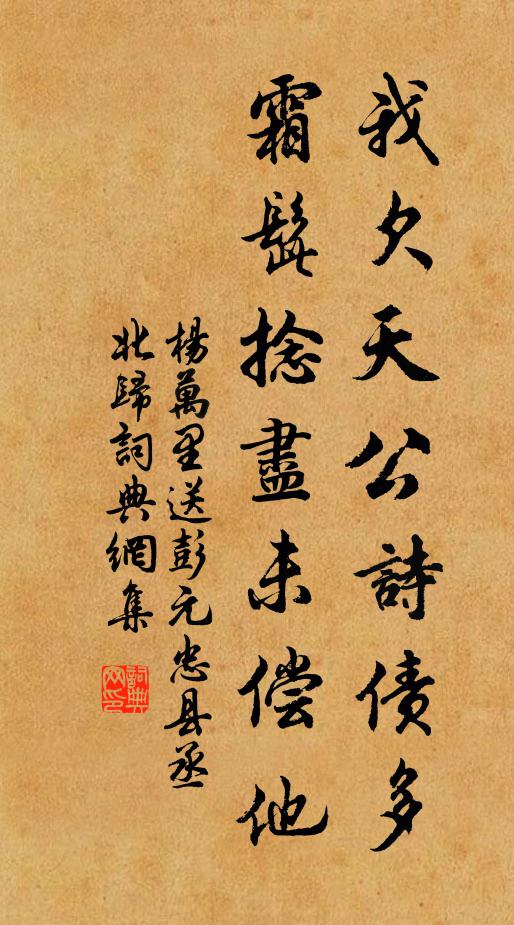 我欠天公詩债多
霜髭捻盡未偿他
楊萬里送彭元忠县丞
北歸詞典網集
詞典网印